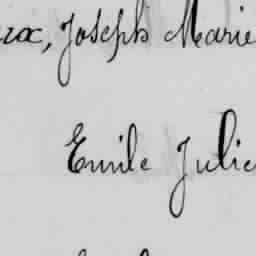 Joseph Marie
Emile Julie